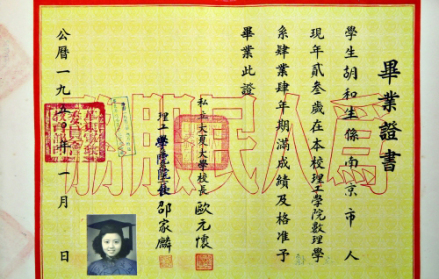 畢業證書
學生胡和生係南京市人
現年貳叁歲在本校理工學院數理學
系肄業肆年期滿成績及格准予
畢業此證
私立大夏大學校長歐元懷
理工學院院長邵家麟
公曆一九五〇年一月日
為人民服務